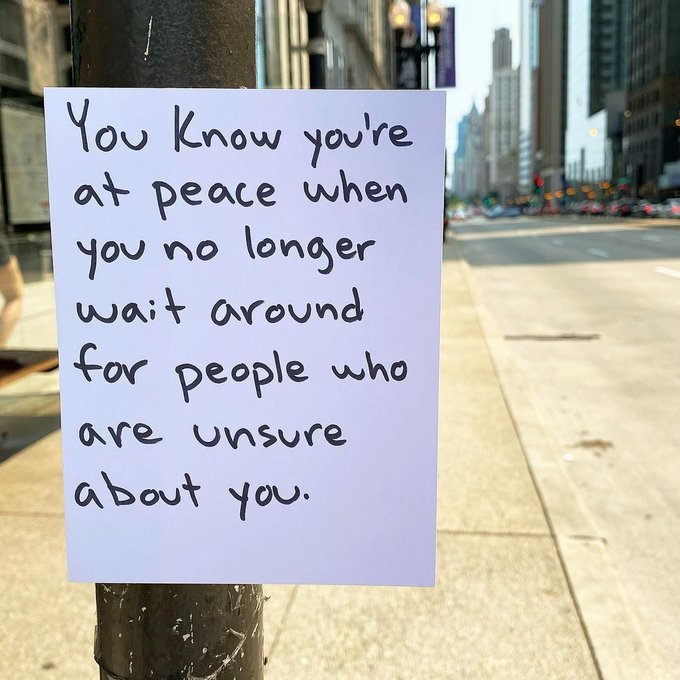 You Know you're
at peace when
you no longer
wait around
for people who
are unsure
about you.